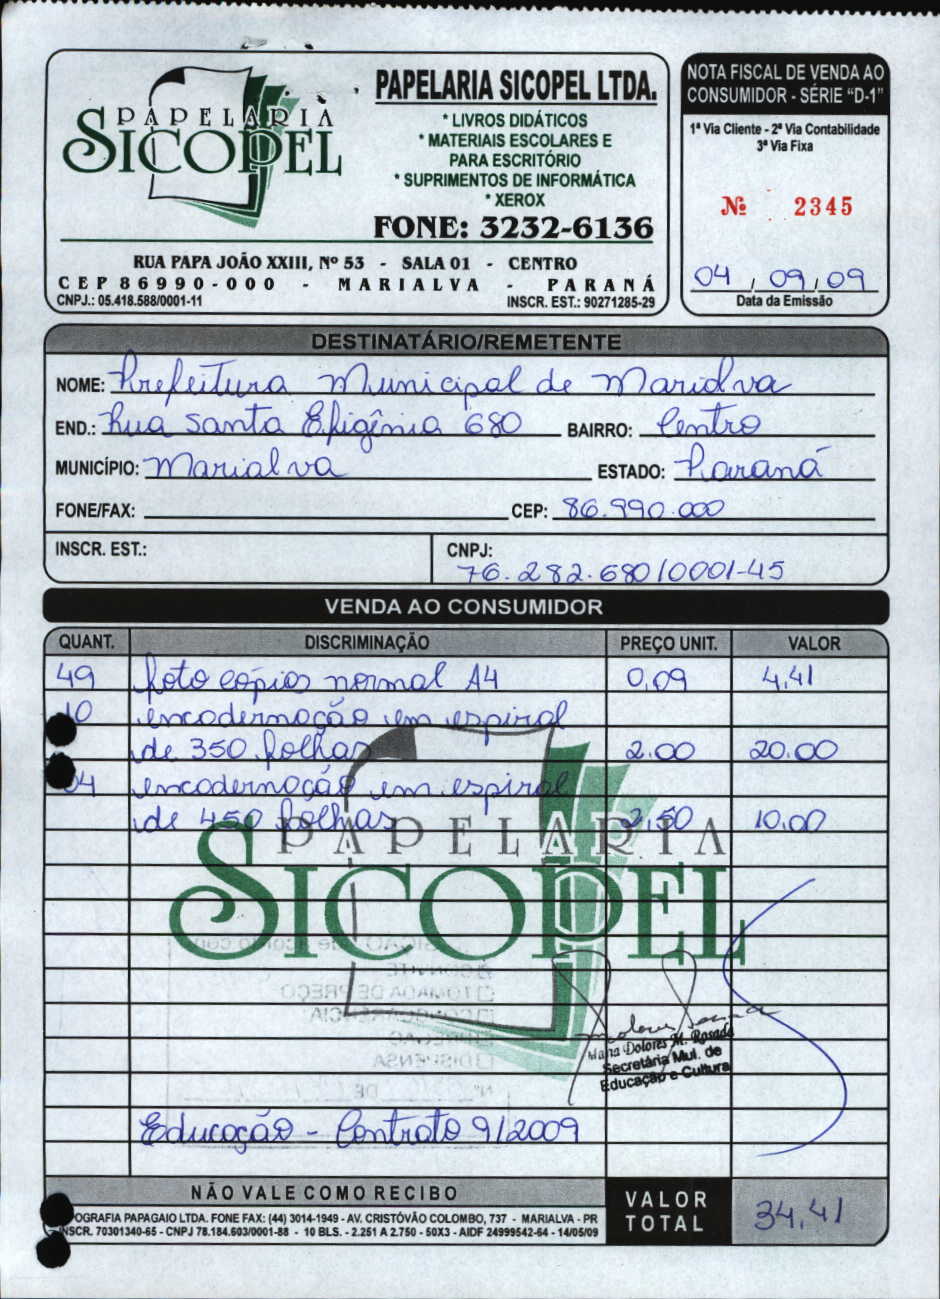 PAPELARIA
SICOPEL
PAPELARIA SICOPEL LTDA.
* LIVROS DIDÁTICOS
* MATERIAIS ESCOLARES E
PARA ESCRITÓRIO
* SUPRIMENTOS DE INFORMÁTICA
* XEROX
FONE: 3232-6136
RUA PAPA JOÃO XXIII, Nº 53 - SALA 01 - CENTRO
CEP 86990-000 - MARIALVA - PARANÁ
CNPJ.: 05.418.588/0001-11 INSCR. EST.: 90271285-29
NOTA FISCAL DE VENDA AO
CONSUMIDOR - SÉRIE "D-1"
1ª Via Cliente - 2ª Via Contabilidade
3ª Via Fixa
Nº 2345
04 / 09 / 09
Data da Emissão
DESTINATÁRIO/REMETENTE
NOME: Prefeitura Municipal de Marialva
END.: Rua Santa Efigênia 680 BAIRRO: Centro
MUNICÍPIO: Marialva ESTADO: Paraná
FONE/FAX: CEP: 86.990.000
INSCR. EST.: CNPJ: 76.282.680/0001-45
VENDA AO CONSUMIDOR
QUANT. DISCRIMINAÇÃO PREÇO UNIT. VALOR
49 foto cópias normal A4 0,09 4,41
10 encadernação em espiral
de 350 folhas 2.00 20.00
04 encadernação em espiral
de 450 folhas 2,50 10,00
PAPELARIA
SICOPEL
CONVITE
TOMADA DE PREÇO
CONCORRÊNCIA
PREGÃO
DISPENSA
Nº DE
Maria Dolores M. Rosada
Secretária Mul. de
Educação e Cultura
Educação - Contrato 9/2009
NÃO VALE COMO RECIBO
POGRAFIA PAPAGAIO LTDA. FONE FAX: (44) 3014-1949 - AV. CRISTÓVÃO COLOMBO, 737 - MARIALVA - PR
INSCR. 70301340-65 - CNPJ 78.184.603/0001-88 - 10 BLS. - 2.251 A 2.750 - 50X3 - AIDF 24999542-64 - 14/05/09
VALOR
TOTAL 34,41